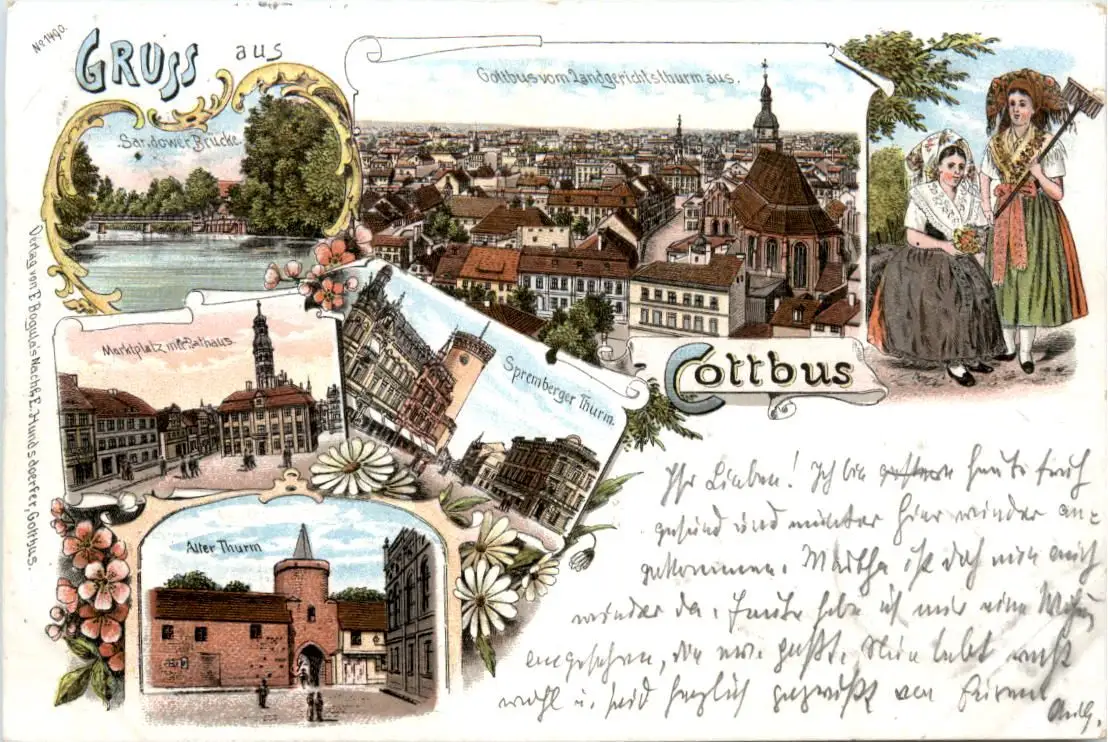 No 1490.
GRUSS aus
Sandower Brücke.
Cottbus vom Landgerichtsthurm aus.
Marktplatz mit Rathaus.
Spremberger Thurm.
Cottbus
Alter Thurm
Verlag von E. Bogula's Nachf. E. Hundsdoerfer, Cottbus.
Ihr Lieben! Ich bin gestern heute früh
gesund und munter hier wieder an-
gekommen. Martha ist doch nun auch
wieder da. Heute habe ich mir eine
angesehen, die mir paßt. Nun lebt recht
wohl u. seid herzlich gegrüßt von